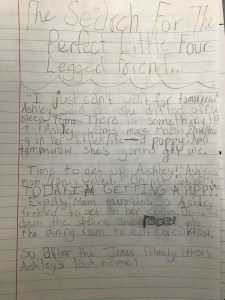 The Search For The
Perfect Little Four-
Legged Friend..
"I just can't wait for tomorrow"
Ashley said as she drifted off to
sleep. There is something
Ashley wants more than anything
in her little life—a puppy. And
tomorrow she's gonna get one.
Time to get up, Ashley! Ashley's
mom
TODAY I'M GETTING A PUPPY
mom Ashley
to get on her
down the stairs and
into
the dining room to eat breakfast.
So after the Jones family (that's
Ashley's last name)